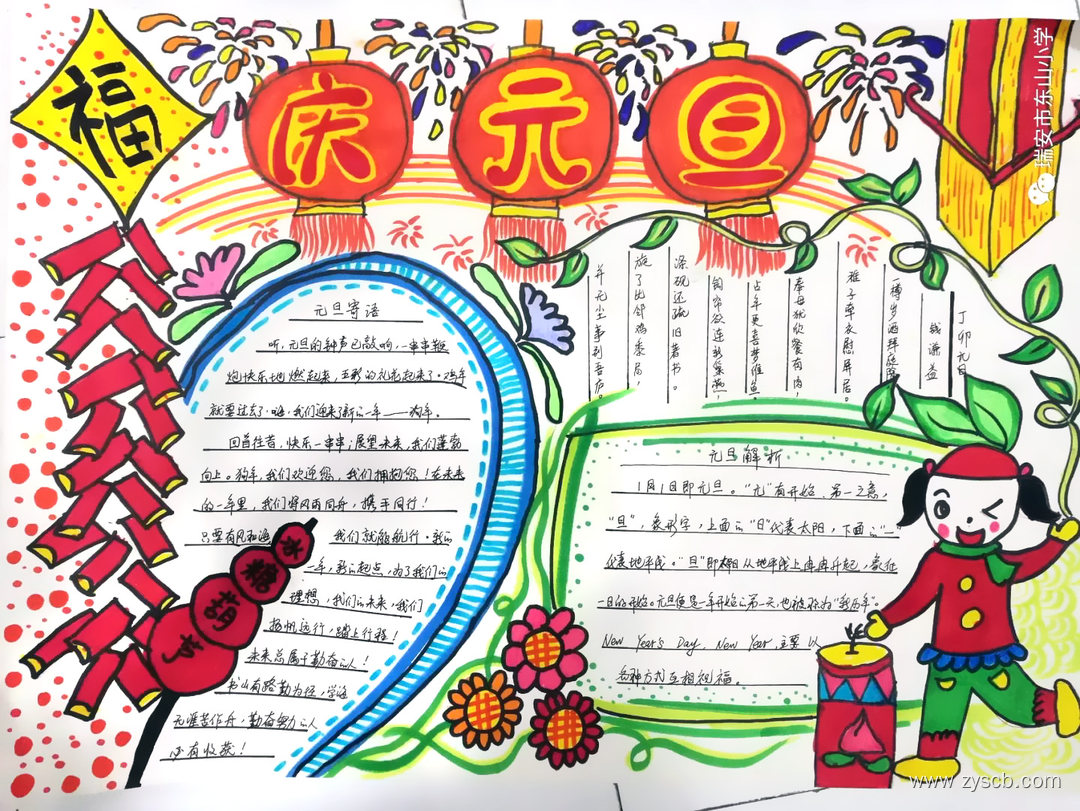 福
庆元旦
瑞安市东山小学
元旦寄语
听,元旦的钟声已敲响,一串串鞭
炮快乐地燃起来,五彩的礼花起来了。鸡年
就要过去了。嗨,我们迎来了新的一年——狗年。
回首往昔,快乐一串串;展望未来,我们蓬勃
向上。狗年,我们欢迎您,我们拥抱您!在未来
的一年里,我们将风雨同舟,携手同行!
只要有风和 我们就能航行。新的
一年,新的起点,为了我们的
理想,我们的未来,我们
扬帆远行,踏上行程!
未来总属于勤奋的人!
书山有路勤为径,学海
无涯苦作舟,勤奋努力的人
必有收获!
冰糖葫芦
丁卯元日
钱谦益
一樽岁酒拜庭除
稚子牵衣慰屏居。
奉母犹欣餐有肉,
占年更喜梦维鱼。
帘欲连新巢燕,
涤砚还疏旧著书。
旋了比邻鸡黍局,
并无尘事到吾庐。
元旦解析
1月1日即元旦。"元"有开始、第一之意,
"旦",象形字,上面的"日"代表太阳,下面的"一
代表地平线。"旦"即太阳从地平线上冉冉升起,象征
一日的开始。元旦便是一年开始的第一天,也被称为"新历年"。
New Year's Day, New Year,主要以
各种方式互相祝福。
www.zyscb.com